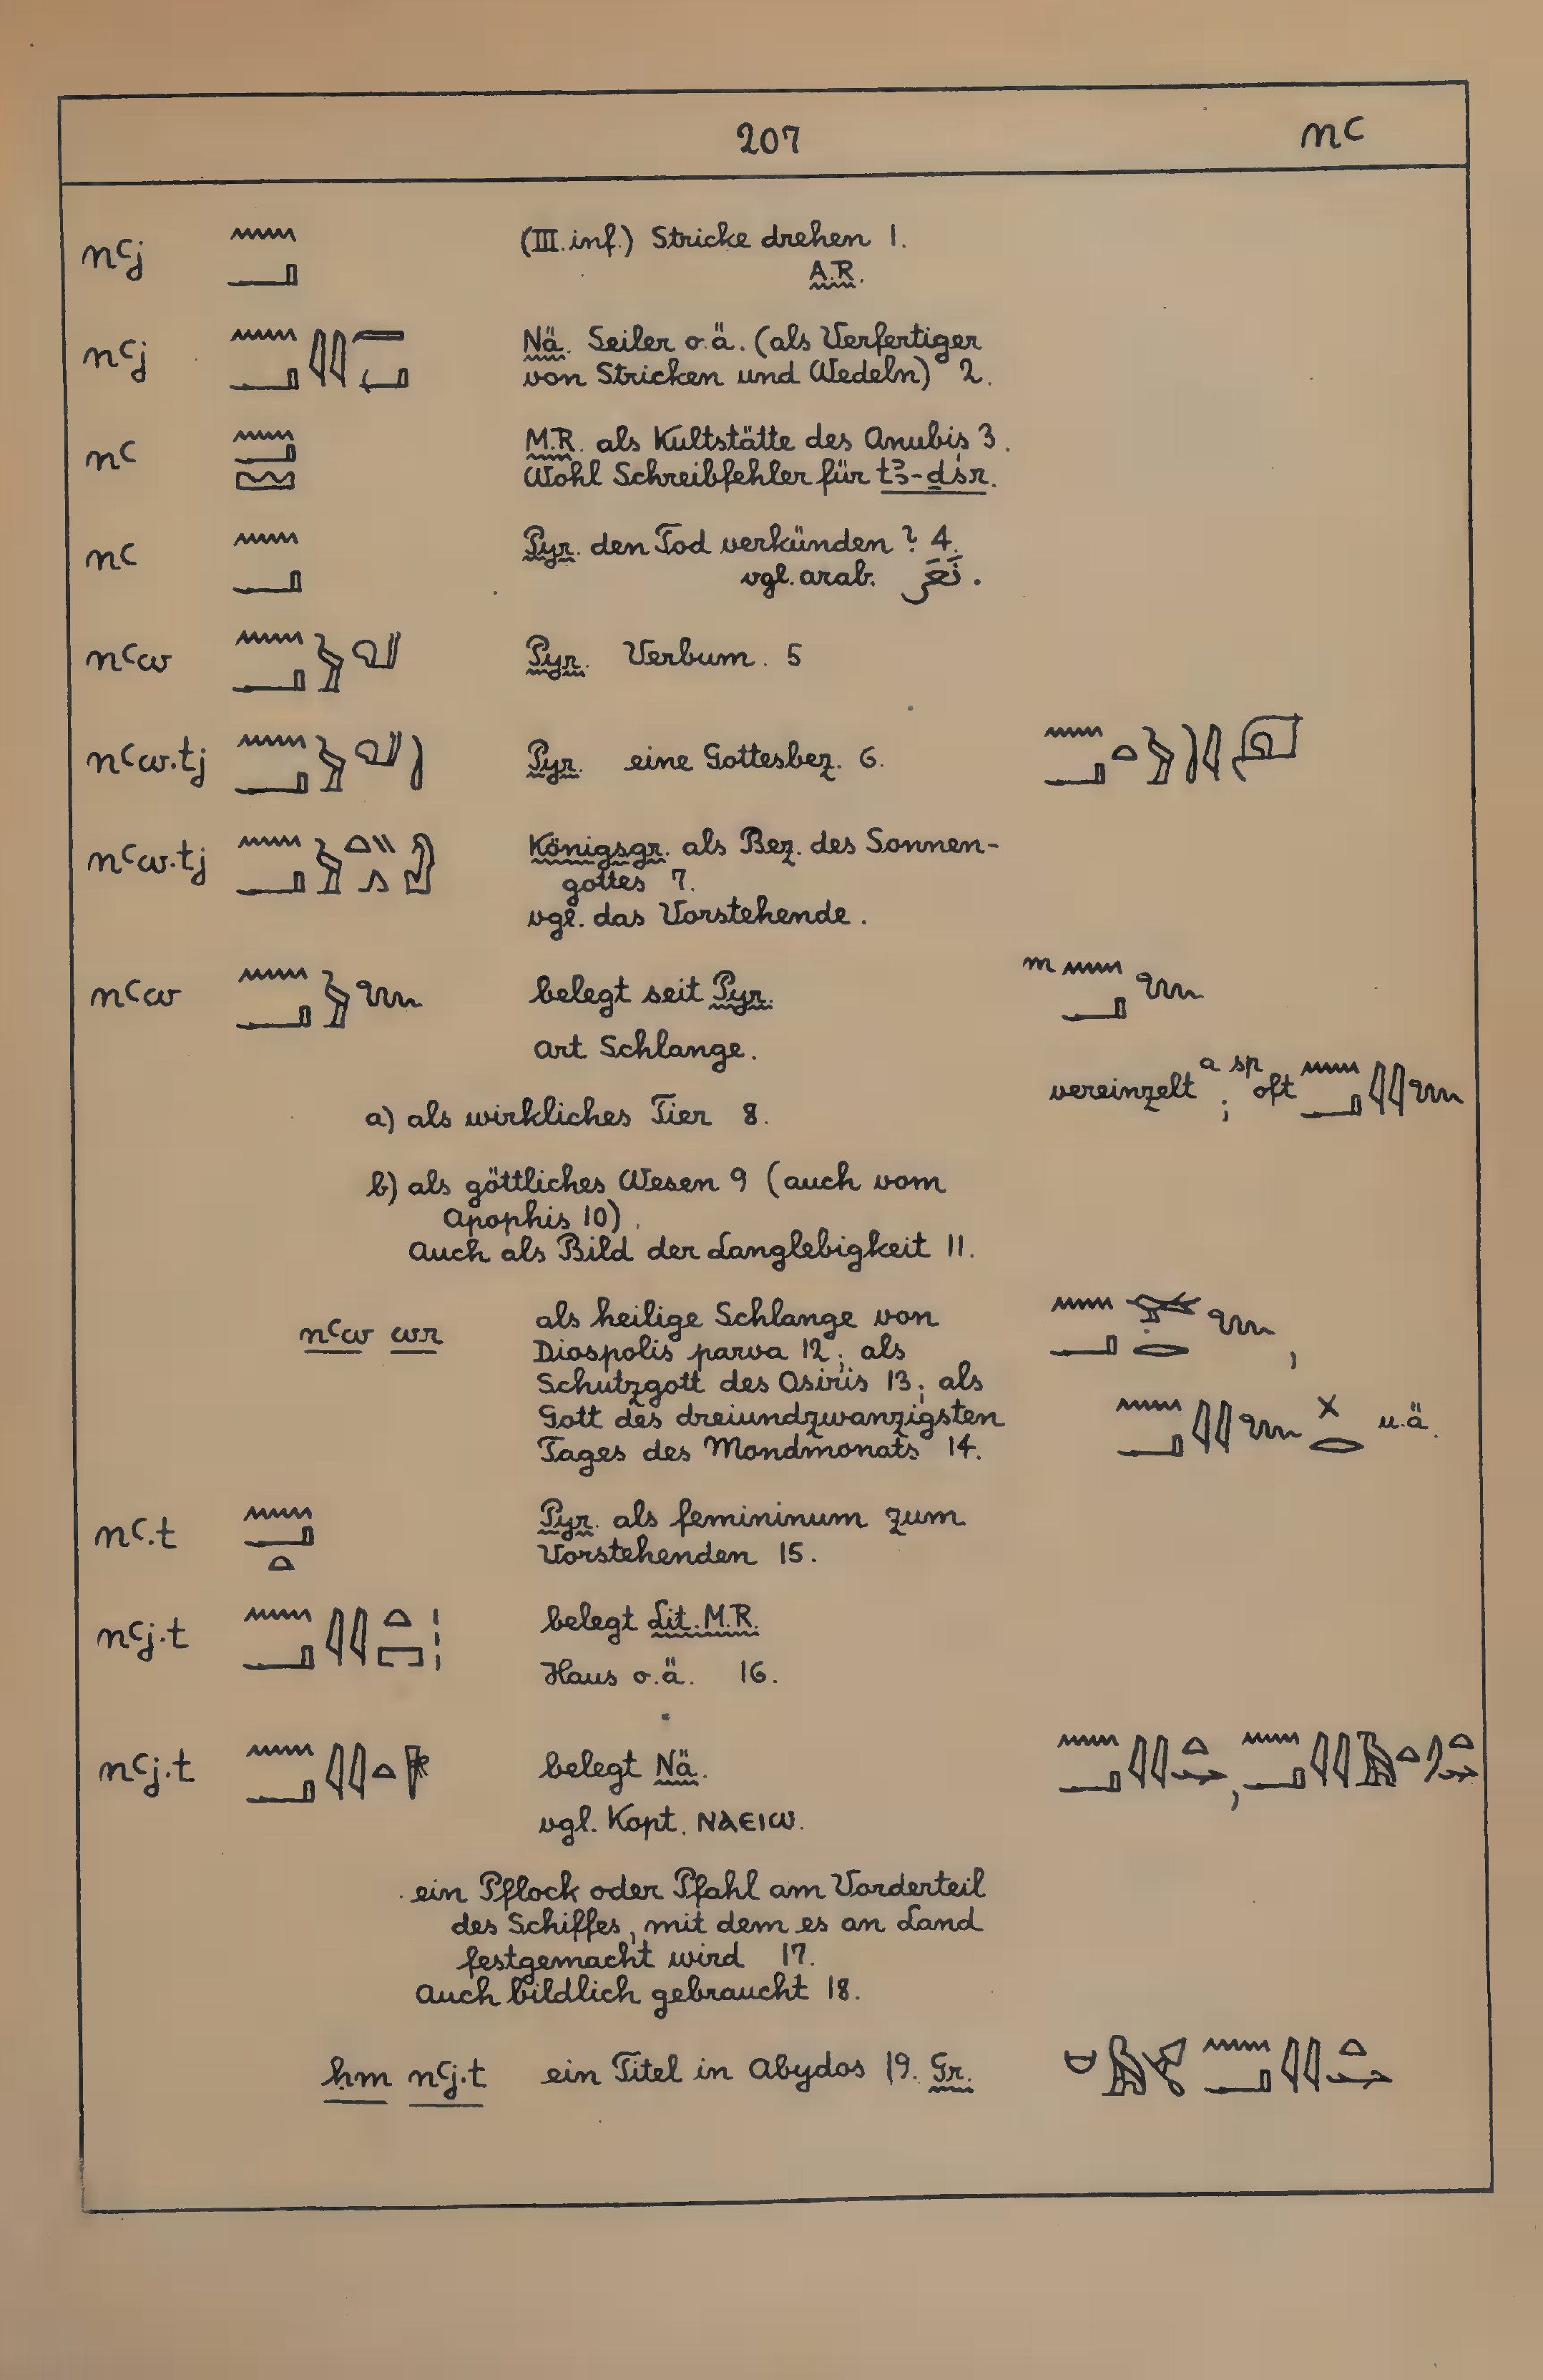 207 nꜥ
nꜥj 𓈖𓂝 (III. inf.) Stricke drehen 1.
A.R.
nꜥj Nä. Seiler o.ä. (als Verfertiger
von Stricken und Wedeln) 2.
nꜥ M.R. als Kultstätte des Anubis 3.
Wohl Schreibfehler für tꜣ-ḏśr.
nꜥ 𓈖𓂝 Pyr. den Tod verkünden ? 4.
vgl. arab. نَعَى.
nꜥw Pyr. Verbum. 5
nꜥw.tj Pyr. eine Gottesbez. 6.
nꜥw.tj Königsgr. als Bez. des Sonnen-
gottes 7.
vgl. das Vorstehende.
nꜥw belegt seit Pyr. m
Art Schlange.
vereinzelt a ; sp oft
a) als wirkliches Tier 8.
b) als göttliches Wesen 9 (auch vom
Apophis 10).
Auch als Bild der Langlebigkeit 11.
nꜥw wr als heilige Schlange von
Diospolis parva 12; als
Schutzgott des Osiris 13; als
Gott des dreiundzwanzigsten u.ä.
Tages des Mondmonats 14.
nꜥ.t 𓈖𓂝𓏏 Pyr. als femininum zum
Vorstehenden 15.
nꜥj.t 𓈖𓂝𓇋𓇋𓏏𓉐𓏥 belegt Lit. M.R.
Haus o.ä. 16.
nꜥj.t belegt Nä.
vgl. Kopt. ⲚⲀⲈⲒⲰ.
ein Pflock oder Pfahl am Vorderteil
des Schiffes, mit dem es an Land
festgemacht wird 17.
Auch bildlich gebraucht 18.
ḥm nꜥj.t ein Titel in Abydos 19. Gr.